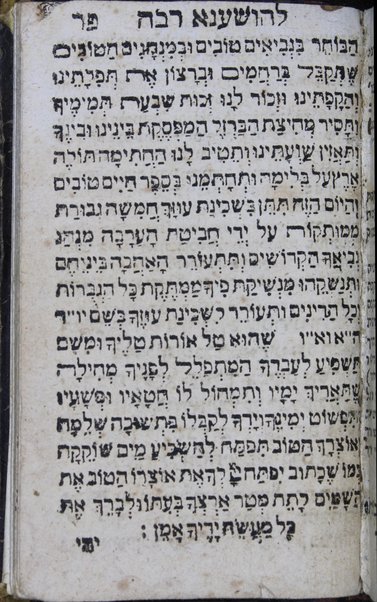 להושענא רבה פד
הבוחר בנביאים טובים ובמנהגיהם הטובים
שתקבל ברחמים וברצון את תפלתינו
והקפתינו וזכור לנו זכות שבעת תמימיך
ותסיר מחיצת הברזל המפסקת בינינו ובינך
ותאזין שועתינו ותטיב לנו החתימה תולה
ארץ על בלימה ותחתמנו בספר חיים טובים
והיום הזה תתן בשכינת עוזך חמשה גבורת
ממותקות על ידי חביטת הערבה מנהג
נביאך הקדושים ותתעורר האהבה ביניהם
ותנשקהו מנשיקת פיך ממתקת כל הגבורות
וכל הדינים ותעורר לשכינת עוזך בשם יו"ד
ה"א וא"ו שהוא טל אורות טליך ומשם
תשפיע לעבדך המתפלל לפניך מחילה
שתאריך ימיו ותמחול לו חטאיו ופשעיו
ותפשוט ימינך וידך לקבלו בתשובה שלמה
אוצרך הטוב תפתח להשביע מים שוקקת
כמו שכתוב יפתח יי לך את אוצרו הטוב את
השמים לתת מטר ארצך בעתו ולברך את
כל מעשה ידיך אמן:
יהי